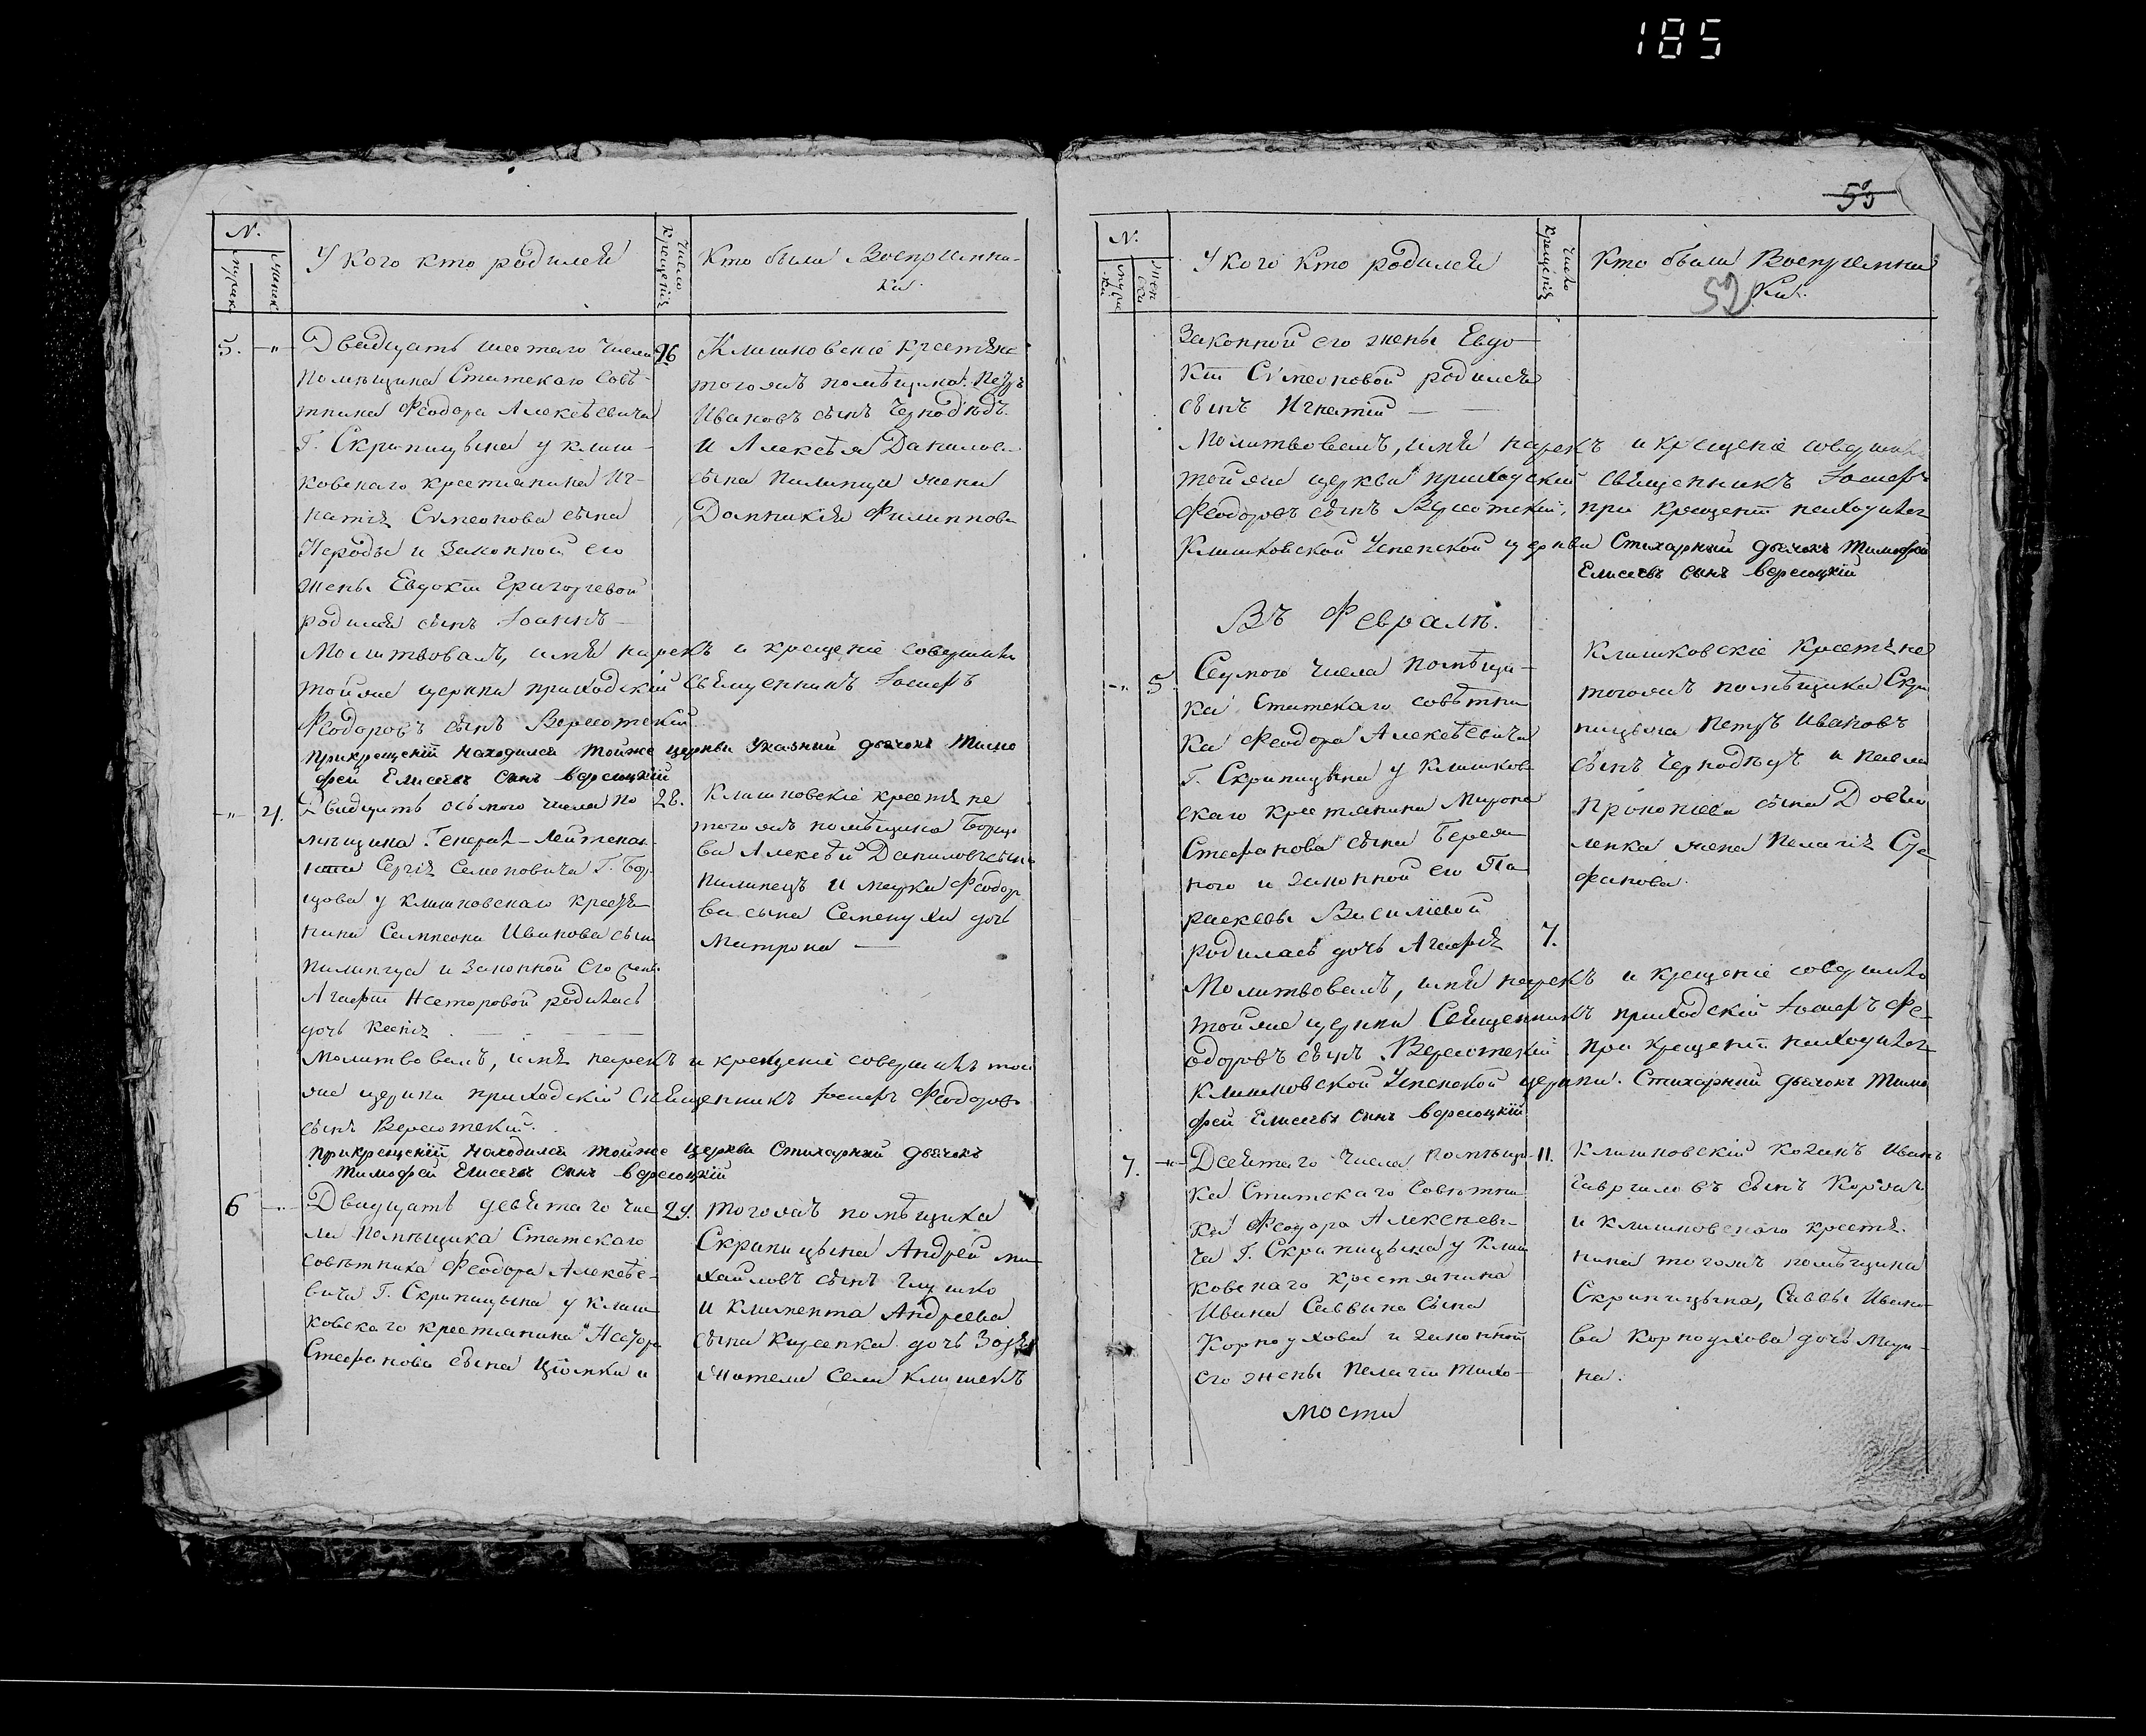 185
N.
мужск
женск
У кого кто родился
Число
Крещенія
Кто были Воспріемни-
ки.
5. -"- Двадцать шестаго числа 26
помѣщика Статскаго Совѣ-
тника Феодора Алексѣевича
Г. Скрипицына у клиш-
ковскаго крестянина Иг-
натія Сѵмеонова сына
и Законной его
жены Евдокіи Григоріевой
родился сынъ Іоаннъ —
Клишковскіе крестяне
тогожъ помѣщика Петръ
Ивановъ сынъ Чернодѣдъ
и Алексѣя Данилов
сына Пилипца жена
Домникія Филиппова
Молитвовалъ, имя нарекъ и крещеніе совершилъ
тойже церкви приходскій священникъ Іосифъ
Феодоровъ сынъ Вересотскій
При крещеніи находился тойже церкви Указний дьячокъ Тимо
фей Елисеевъ синъ Вересоцкій
-"- 4. Двадцать осьмого числа по 28.
мѣщика Генерал-Лейтенан-
нта Сергія Семеновича Г. Бор
щова у клишковскаго крестя
нина Симеона Иванова сына
Пилипца и Законной его жены
Агафіи Несторовой родилась
дочь Ксенія — —
Клишковскіе крестяне
тогожъ помѣщика Борщо
ва Алексѣй Даниловъ сынъ
Пилипецъ и Марка Феодор
ва сына Семенухи дочь
Матрона —
Молитвовалъ, имя нарекъ и крещеніе совершилъ той
же церкви приходскій Священникъ Іосифъ Феодоров
сынъ Вересотскій.
При крещеніи находился тойже церкви Стихарний дьячокъ
Тимофей Елисеевъ синъ Вересоцкій
6 -"- Двадцать девятаго чис 29.
ла помѣщика Статскаго
совѣтника Феодора Алексѣе-
вича Г. Скрипицына у клиш
ковскаго крестянина Нестора
Стефанова сына Ціомки и
тогожъ помѣщика
Скрипицына Андрей ми
хайловъ сынъ
и Климента Андреева
сына дочь
жители села Клишекъ
59
52
N.
мужс
ки
жен
ски
У кого кто родился
Число
Крещенія
Кто были Воспріемни
ки.
Законной его жены Евдо
кіи Сѵмеоновой родился
сынъ Игнатій — —
Молитвовалъ, имя нарекъ и крещеніе совершил
тойже церкви приходскій священникъ Іосифъ
Феодоровъ сынъ Вересотскій, при крещеніи находился
Клишковской Успенской церкви Стихарний дьячокъ Тимофей
Елисеевъ синъ Вересоцкій
Въ Февралѣ.
-"- 5 Седмого числа помѣщи-
ка Статскаго совѣтни
ка Феодора Алексѣевича
Г. Скрипицына у клишков
скаго крестянина Мирона
Стефанова сына
ного и законной его Па
раскевы Василіевой
родилась дочь Агафія 7.
Клишковскіе Крестяне
тогожъ помѣщика Скри
пицына Петръ Ивановъ
сынъ Чернодѣдъ и Павла
Прокопіева сына
ленка жена Пелагія Сте
фанова.
Молитвовалъ, имя нарекъ и крещеніе совершилъ
тойже церкви Священникъ приходскій Іосифъ Фе-
одоровъ сынъ Вересотскій при крещеніи находился
Клишковской Успенской церкви. Стихарний дьячокъ Тимо
фей Елисеевъ синъ Вересоцкій
7. -"- Девятаго числа помѣщи- 11.
ка Статскаго Совѣтни
ка Феодора Алексѣеви-
ча Г. Скрипицына у клиш
ковскаго крестянина
Ивана Саввина сына
Корноухова и законной
его жены Пелагіи Тимо-
Клишковскій козакъ Иванъ
Гавріиловъ сынъ Коржъ
и клишковскаго крестя-
нина тогожъ помѣщика
Скрипицына, Саввы Ивано-
ва Корноухова дочь Мари-
на.
мости